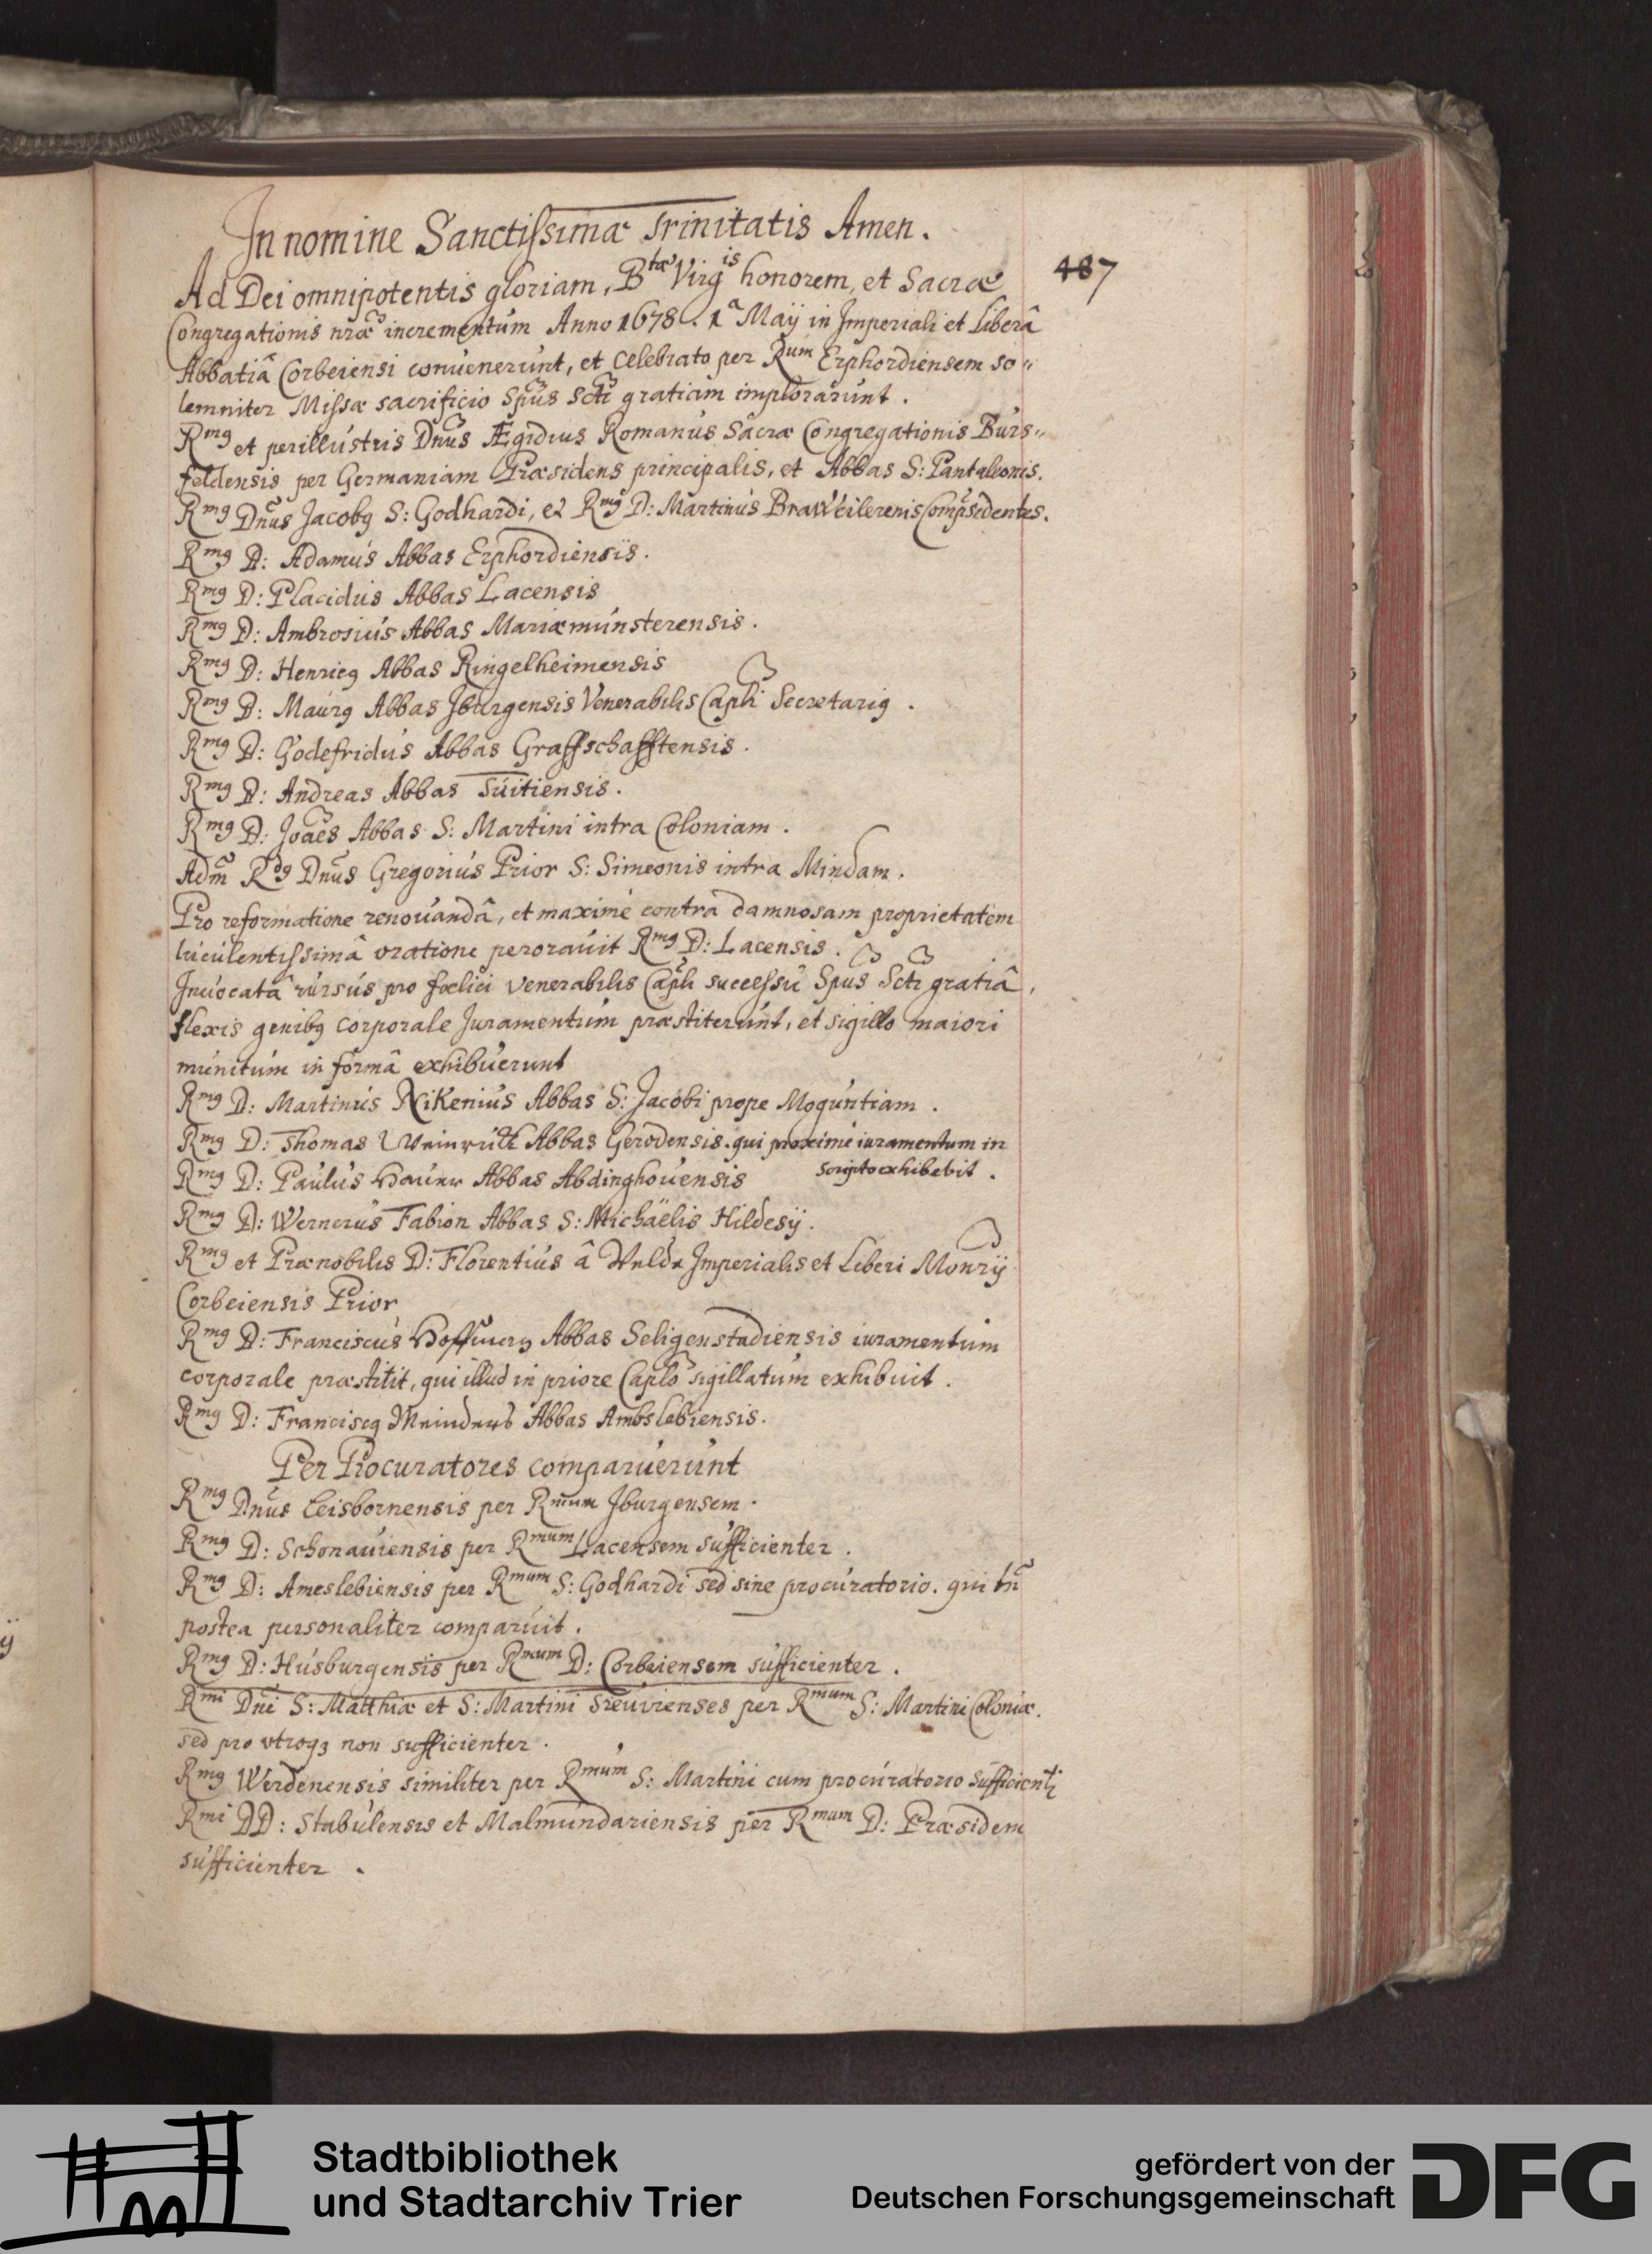 In nomine Sanctissimæ Trinitatis Amen.
487
Ad Dei omnipotentis gloriam, Btæ Virgis honorem, et Sacræ
Congregationis nræ incrementum Anno 1678. 1ª Maÿ in Imperiali et Liberâ
Abbatiâ Corbeiensi convenerunt, et celebrato per Rum Erphordiensem so„
lemniter Missæ sacrificio Spûs Scti gratiam implorarunt.
Rmꝰ et perillustris Dnus Ægidius Romanus Sacræ Congregationis Burs„
feldensis per Germaniam Præsidens principalis, et Abbas S: Pantaleonis.
Rmꝰ Dnus Jacobꝰ S: Godhardi, et Rmꝰ D: Martinus Braweilerensis Compsidentes.
Rmꝰ D: Adamus Abbas Erphordiensis.
Rmꝰ D: Placidus Abbas Lacensis
Rmꝰ D: Ambrosius Abbas Mariæmunsterensis.
Rmꝰ D: Henricꝰ Abbas Ringelheimensis
Rmꝰ D: Maurꝰ Abbas Iburgensis Venerabilis Capli Secretariꝰ.
Rmꝰ D: Godefridus Abbas Graffschafftensis.
Rmꝰ D: Andreas Abbas Tuitiensis.
Rmꝰ D: Joaes Abbas S: Martini intra Coloniam.
Adm Rdꝰ Dnus Gregorius Prior S: Simeonis intra Mindam.
Pro reformatione renovandâ, et maxime contra damnosam proprietatem
luculentissimâ oratione peroravit Rmꝰ D: Lacensis.
Invocatâ rursus pro fœlici venerabilis Capli successu Spûs Scti gratiâ,
flexis genibꝰ corporale Juramentum præstiterunt, et sigillo maiori
munitum in formâ exhibuerunt
Rmꝰ D: Martinus Nikenius Abbas S: Jacobi prope Moguntiam.
Rmꝰ D: Thomas Abbas Gerodensis. qui proxime iuramentum in
scripto exhibebit.
Rmꝰ D: Paulus Abbas Abdinghovensis
Rmꝰ D: Wernerus Fabion Abbas S: Michaëlis Hildesÿ.
Rmꝰ et Prænobilis D: Florentius â Velde Imperialis et Liberi Monrÿ
Corbeiensis Prior
Rmꝰ D: Franciscus Abbas Seligenstadiensis iuramentum
corporale præstitit, qui illud in priore Caplo sigillatum exhibuit.
Rmꝰ D: Franciscꝰ Meinders Abbas Ambslebiensis.
Per Procuratores comparuerunt
Rmꝰ Dnus Leisbornensis per Rmum Iburgensem.
Rmꝰ D: Schonaviensis per Rmum Lacensem sufficienter.
Rmꝰ D: Ameslebiensis per Rmum S: Godhardi sed sine procuratorio. qui tn
postea personaliter comparuit.
Rmꝰ D: Husburgensis per Rmum D: Corbeiensem sufficienter.
Rmi Dni S: Matthiæ et S: Martini Trevirenses per Rmum S: Martini Coloniæ.
sed pro utroqꝫ non sufficienter.
Rmꝰ Werdenensis similiter per Rmum S: Martini cum procuratorio sufficienti
Rmi DD: Stabulensis et Malmundariensis per Rmum D: Præsidem
sufficienter.
Stadtbibliothek
und Stadtarchiv Trier
gefördert von der
Deutschen Forschungsgemeinschaft
DFG